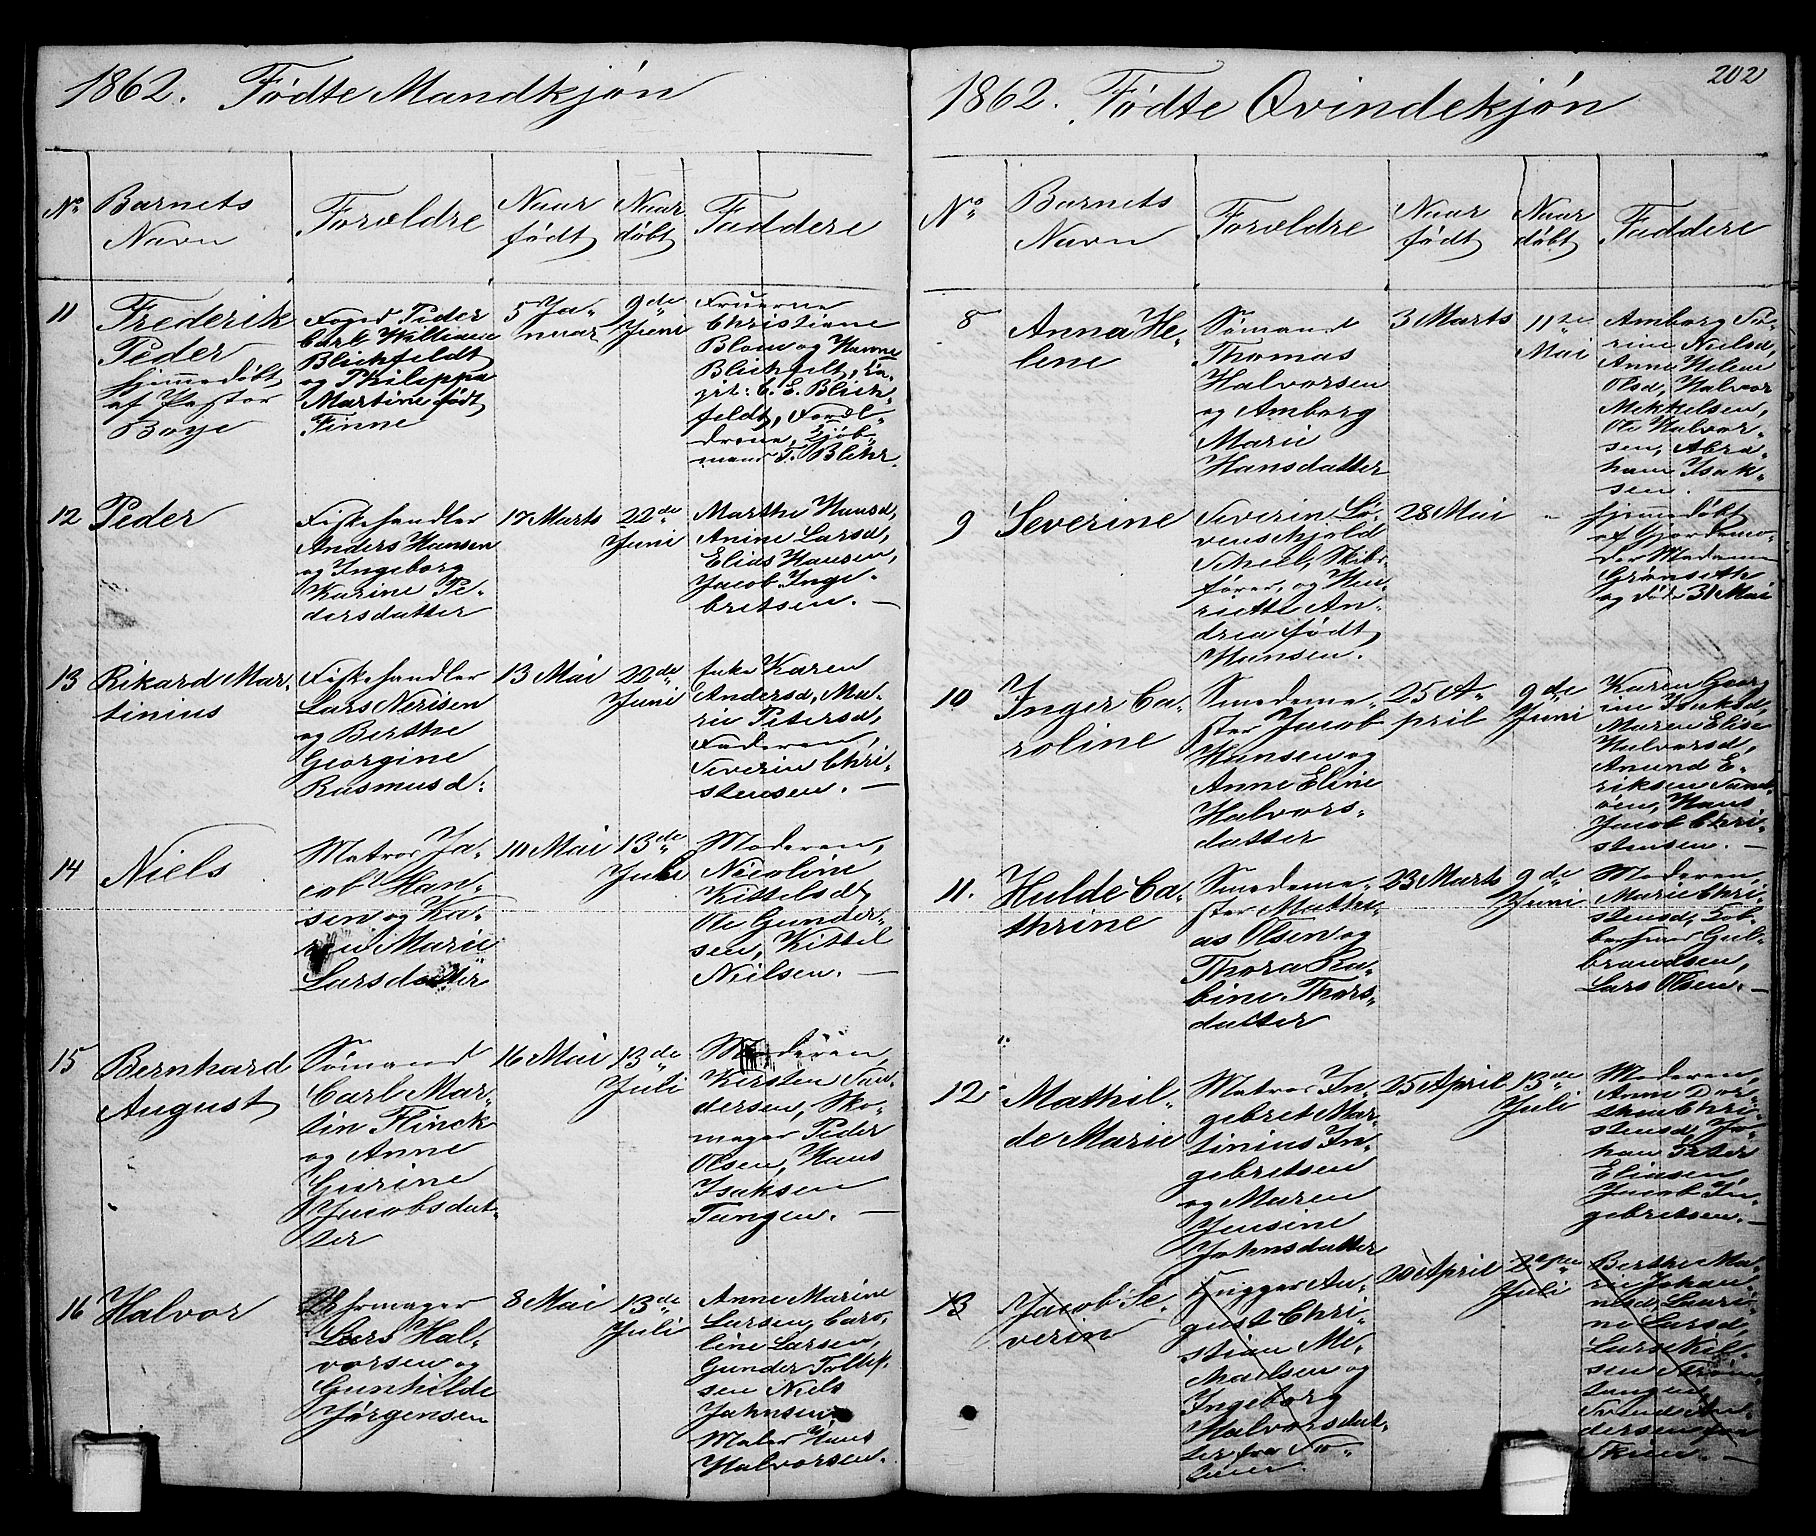 1862. Fødte Mandkjøn
No
Barnets
Navn
Forældre
Naar
født
Naar
døbt
Faddere
11
Frederik
Peder
hjemmedøbt
af Pastor
Boye
Foged Peder
Carl William
Blichfeldt
og Philippa
Martine født
Finne
5 Ja-
nuar
9de
Juni
Fruerne
Christiane
Blom og Hanne
Blichfelt, Ca-
pit: C. E. Blich-
feldt, Foræl-
drene, Kjøb-
mand F. Blehr.
12
Peder
Fiskehandler
Anders Hansen
og Ingeborg
Karine Pe-
dersdatter
17 Marts
22de
Juni
Marthe Hansd,
Anine Larsd,
Elias Hansen,
Jacob Inge-
bretsen. —
13
Rikard Mar-
tinius
Fiskehandler
Lars Nerisen
og Birthe
Georgine
Rasmusd:
13 Mai
22de
Juni
Enke Karen
Andersd, Ma-
rie Petersd,
Faderen,
Severin Chri-
stensen. —
14
Niels
Matros Ja-
cob Han-
sen og Ka-
ren Marie
Larsdatter
10 Mai
13de
Juli
Moderen,
Nicoline
Kittelsd,
Ole Gunder-
sen, Kittel
Nielsen. —
15
Bernhard
August
Sømand
Carl Mar-
tin Flinck
og Anne
Gurine
Jacobsdat-
ter
16 Mai
13de
Juli
Moderen,
Kirsten
dersen, Sko-
mager Peder
Olsen, Hans
Isaksen
Tangen. —
16
Halvor
Uhrmager
Lars Hal-
vorsen og
Gunhilde
Jørgensen
8 Mai
13de
Juli
Anne Marine
Larsen, Caro-
line Larsen,
Gunder Tollef-
sen Niels
Jahnsen
Maler Hans
Halvorsen.
1862. Fødte Qvindekjøn
202
No
Barnets
Navn
Forældre
Naar
født
Naar
døbt
Faddere
8
Anna He-
lene
Sømand
Thomas
Halvorsen
og Amborg
Marie
Hansdatter
3 Marts
11te
Mai
Amborg Sø-
rine Nielsd,
Anne Helene
Olsd, Halvor
Mikkelsen,
Ole Halvor-
sen, Abra-
ham Isak-
sen. —
9
Severine
Severin Lø-
venskjold
Skibs-
fører, og Hen-
riette An-
drea født
Hansen.
28 Mai
-
hjemmedøbt
af Gjordemo-
der Madame
Grønseth
og døde 31 Mai
10
Inger Ca-
roline
Smedeme-
ster Jacob
Hansen og
Anne Eline
Halvors-
datter
25 A-
pril
9de
Juni
Karen Georg
ine Isaksd,
Maren Elise
Halvorsd,
Anund E-
riksen
Hans
Jacob Chri-
stensen. —
11.
Hulde Ca-
thrine
Smedeme-
ster Matthi-
as Olsen og
Thora Ra-
bine Thors-
datter
23 Marts
9de
Juni
Moderen,
Marie Chri-
stensd,
Gul-
brandsen,
Lars Olsen. —
12
Mathil-
de Marie
Matros In-
gebret Mar-
tinius In-
gebretsen
og Maren
Jensine
Jahnsdatter
25 April
13de
Juli
Moderen,
Anne Dor-
thea Chri-
stensd, Jo-
han Peter
Eliasen,
Jacob In-
gebretsen. —
13
Jacob Se-
verin
Hugger Au-
gust Chri-
stian
og
Ingeborg
Halvorsdat-
ter fra
20 April
Juli
Berthe Ma-
rie Johan-
nesd, Lauri-
ne Larsd,
Lars Niel-
sen
tangen,
Svend An-
dersen fra
Skien. —